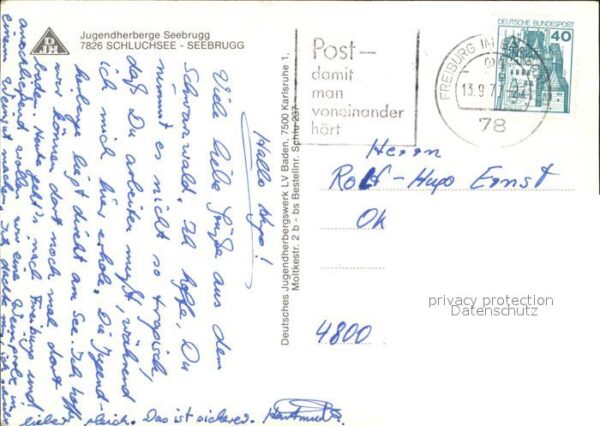 DJH
Jugendherberge Seebrugg
7826 SCHLUCHSEE - SEEBRUGG
Post –
damit
man
voneinander
hört
FREIBURG IM
13.9.7
78
DEUTSCHE BUNDESPOST
40
Deutsches Jugendherbergswerk LV Baden, 7500 Karlsruhe 1,
Moltkestr. 2 b - bs Bestellnr. Schlu 237
Hallo Hugo!
Viele liebe Grüße aus dem
Schwarzwald. Ich hoffe, Du
nimmst es nicht so tragisch,
daß Du arbeiten mußt, während
ich mich hier erhole. Die Jugend-
herberge liegt direkt am See. Ich hoffe
wir können dort noch mal dort
baden. Heute geht's nach Freiburg und
anschließend wollen wir eine Weinprobe in
einem Weingut machen. Ich dachte
lieber gleich. Das ist sicherer. Hartmut
Herrn
Rolf-Hugo Ernst
4800
privacy protection
Datenschutz